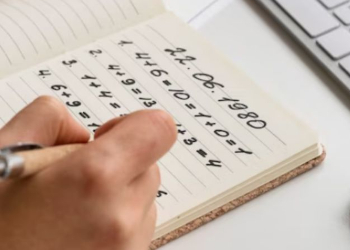 22.06.1980
1. 4+6=10=1+0=1
2. 4+9=13
+3=4
3. 1+4=
4. 6+9=